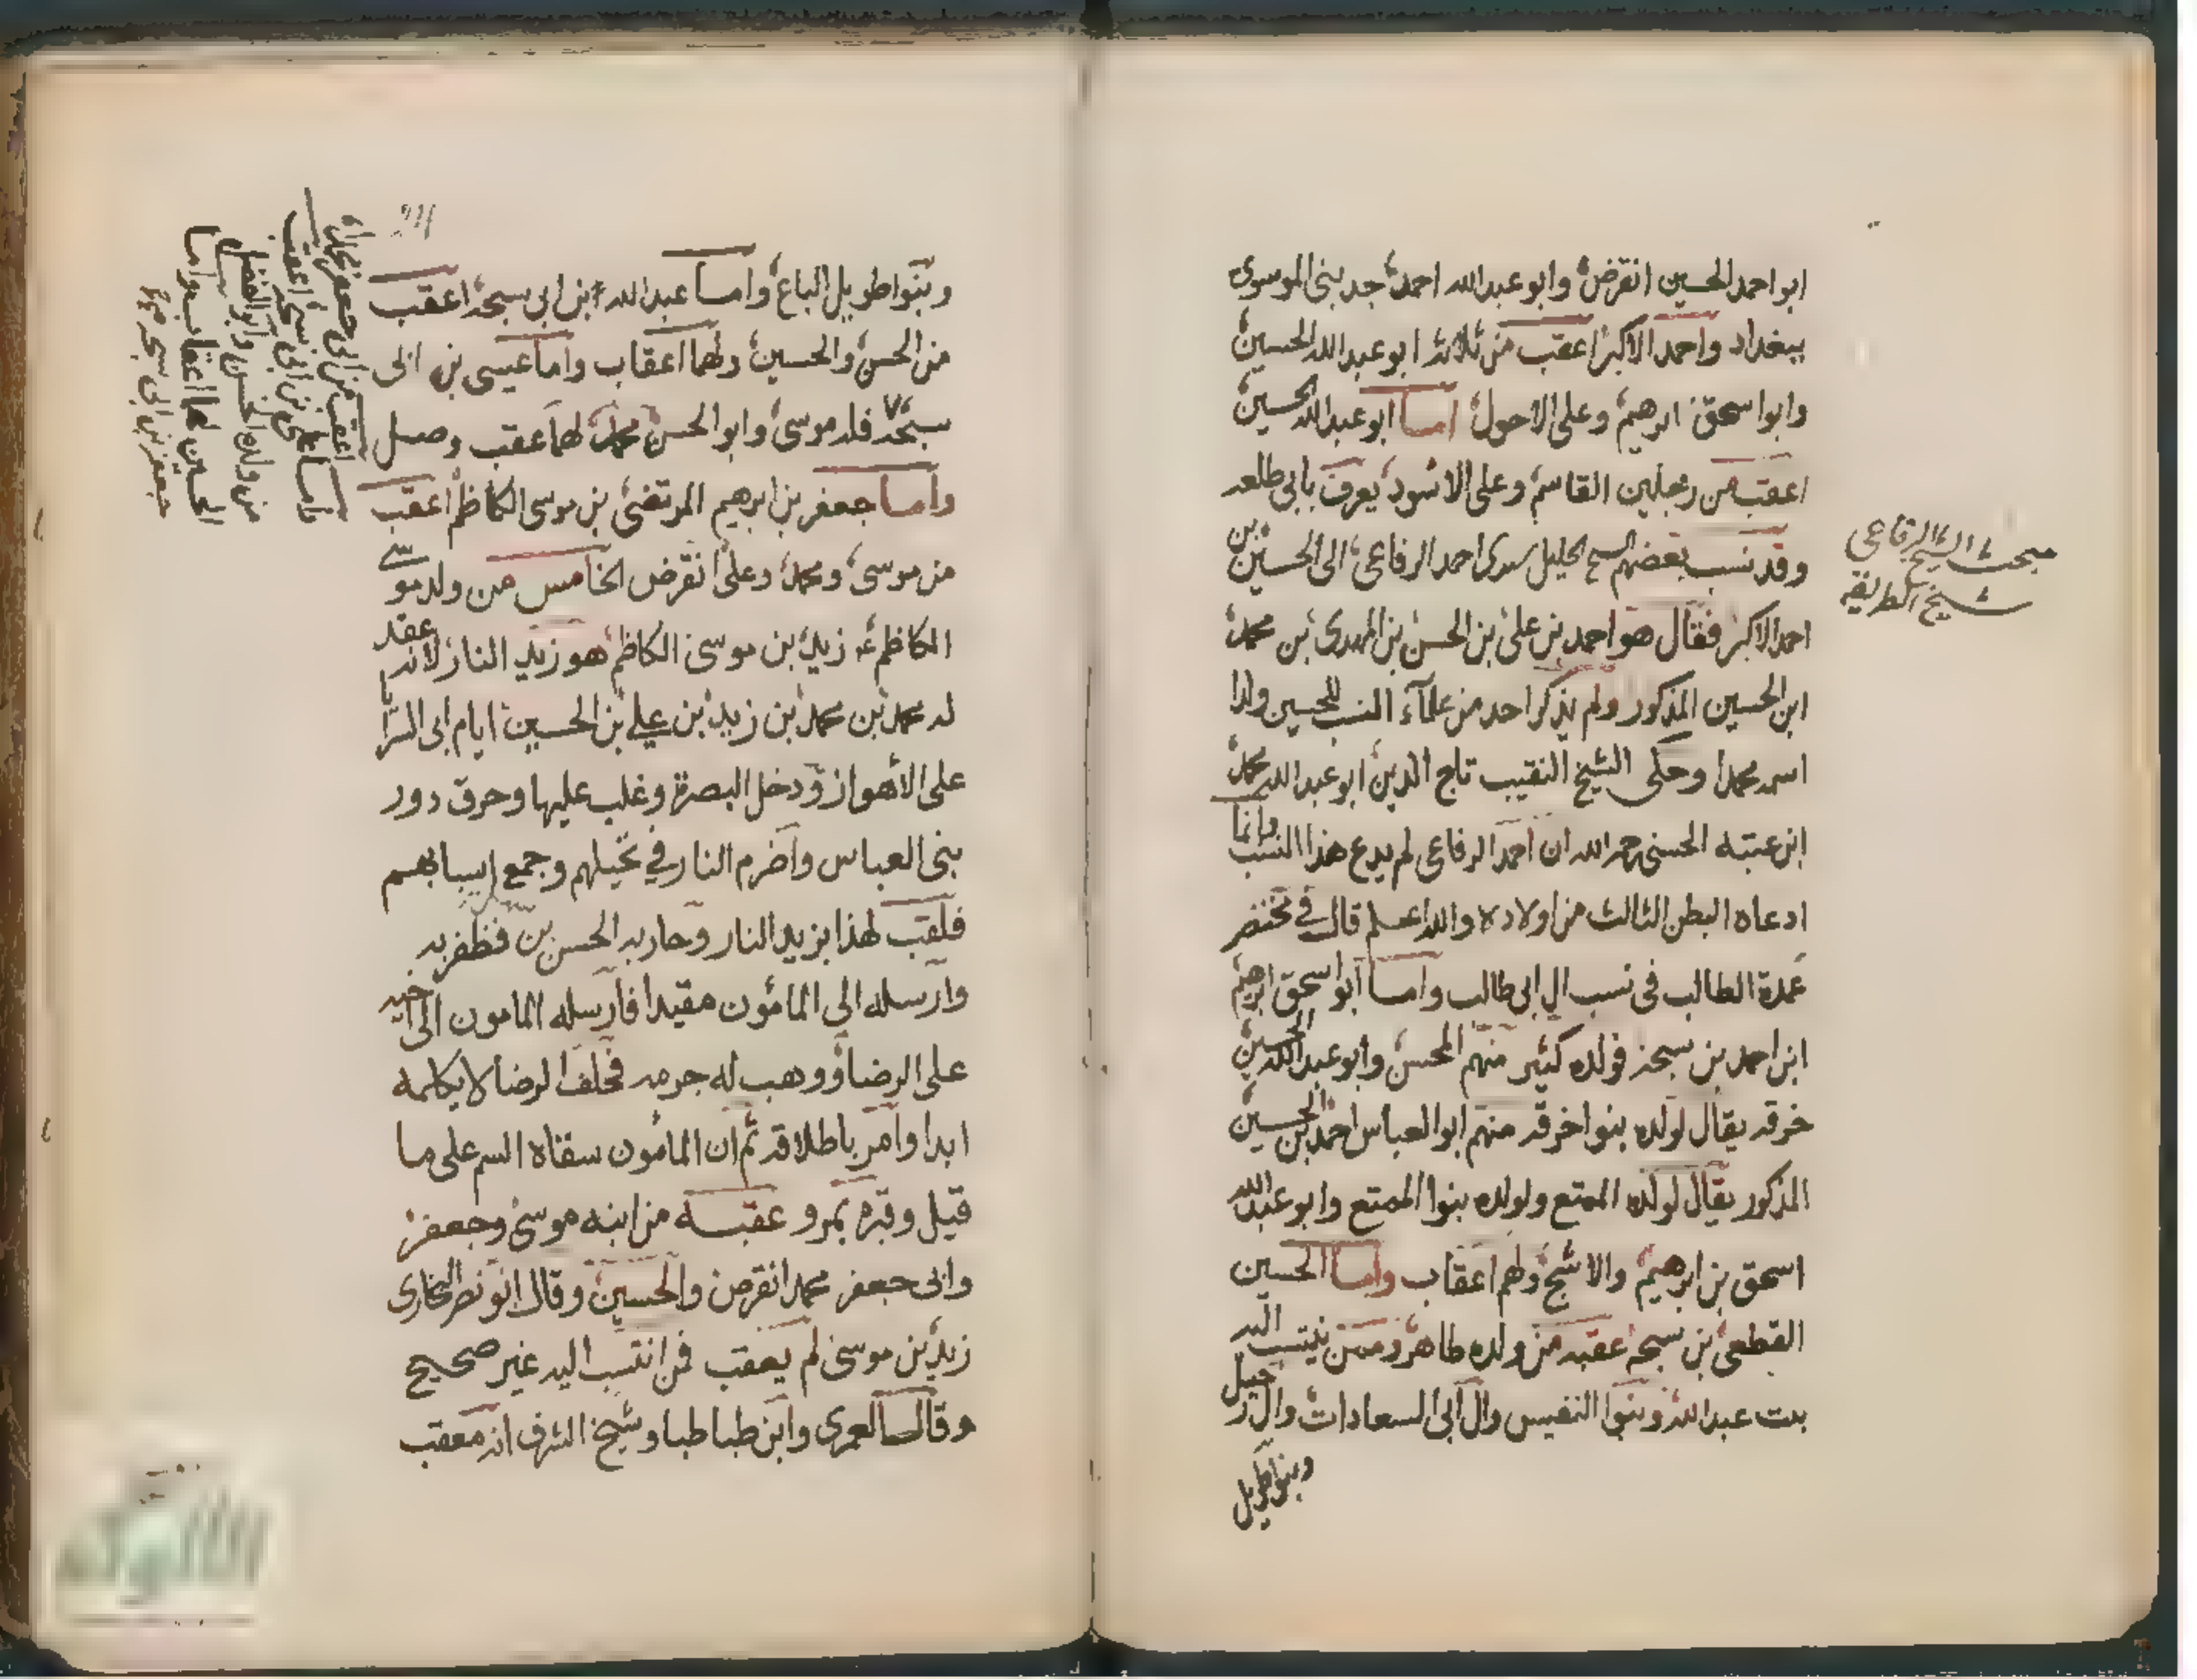 ابو احمد الحسين انقرض وابو عبد الله احمد جد بنى الموسوى
ببغداد واحمد الاكبر اعقب من ثلاثة ابو عبد الله الحسين
وابو اسحق ابرهيم وعلى الاحول اما ابو عبد الله الحسين
اعقب من رجلين القاسم وعلى الاسود يعرف بابى طلعه
وقد نسب بعضهم الشيخ الجليل سيدى احمد الرفاعى الى الحسين بن
احمد الاكبر فقال هو احمد بن على بن الحسن بن المهدى بن محمد
ابن الحسين المذكور ولم يذكر احد من علمآء النسب للحسين ولدا
اسمه محمدا وحكى الشيخ النقيب تاج الدين ابو عبد الله محمد
ابن عتبه الحسنى رحمه الله ان احمد الرفاعى لم يدع هذا النسب وانما
ادعاه البطن الثالث من اولاده والله اعلم قال فى مختصر
عمدة الطالب فى نسب ال ابى طالب واما ابو اسحق ابرهيم
ابن احمد بن سبحه فولده كثير منهم المحسن وابو عبد الله الحسين
خرقه يقال لولده بنوا خرقه منهم ابو العباس احمد بن الحسين
المذكور يقال لولده الممتع ولولده بنوا الممتع وابو عبد الله
اسحق بن ابرهيم والاشج ولهم اعقاب واما الحسين
القطعى بن سبحه عقبه من ولده طاهر وممن ينتسب اليه
بيت عبد الله وبنوا النفيس وال ابى السعادات وال
وبنوا طويل
مبحث الشيخ الرفاعى
شيخ الطريقة
وبنوا طويل الباع واما عبد الله ابن ابى سبحه اعقب
من الحسن والحسين ولهما اعقاب واما عيسى بن ابى
سبحه فله موسى وابو الحسن محمد لهما عقب وصل
واما جعفر بن ابرهيم المرتضى بن موسى الكاظم اعقب
من موسى ومحمد وعلى انقرض الخامس من ولد موسى
الكاظم زيد بن موسى الكاظم هو زيد النار لانه عقد
له محمد بن محمد بن زيد بن على بن الحسين ايام ابى السرايا
على الأهواز ودخل البصرة وغلب عليها وحرق دور
بنى العباس واضرم النار فى نخيلهم وجميع اسبابهم
فلقب لهذا بزيد النار وحاربه الحسن بن فظفر به
وارسله الى المأمون مقيدا فارسله المامون الى اخيه
على الرضا ووهب له جرمه فحلف الرضا لا يكلمه
ابدا وامر باطلاقه ثم ان المأمون سقاه السم على ما
قيل وقبره بمرو عقبه من ابنه موسى وجعفر
وابى جعفر محمد انقرض والحسين وقال ابو نصر البخارى
زيد بن موسى لم يعقب فمن انتسب اليه غير صحيح
وقال العمرى وابن طباطبا وشيخ الشرف انه معقب
اعقب من ابى جعفر محمد
واما على بن ابى سبحه اعقب
من ولده الحسن وابو الفضل
الحسين لهما اعقاب واما
جعفر بن ابى سبحه
الألوكة